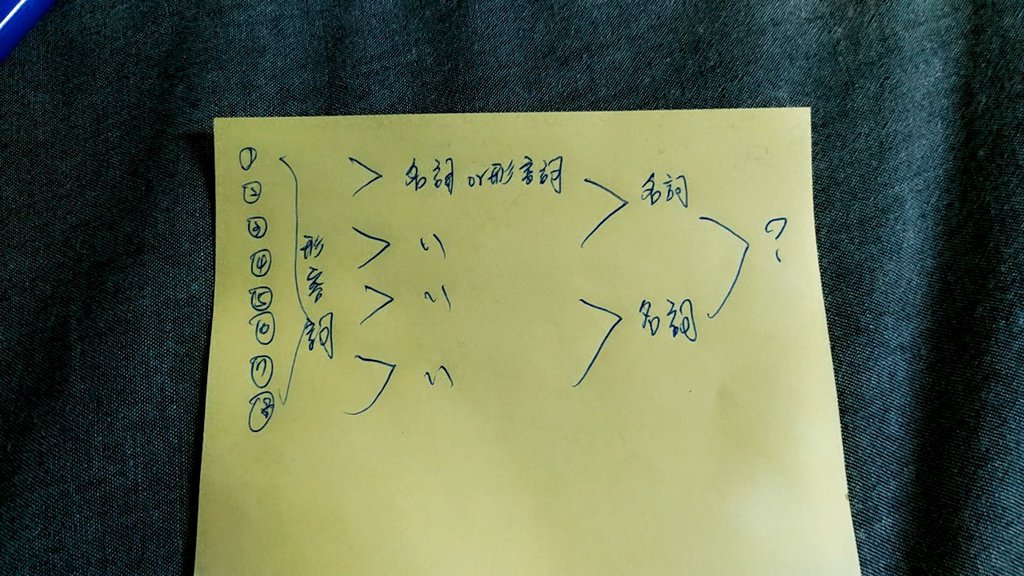 ①
②
③
④
⑤
⑥
⑦
⑧
形容詞
名詞 or 形容詞
〃
〃
〃
名詞
名詞
?